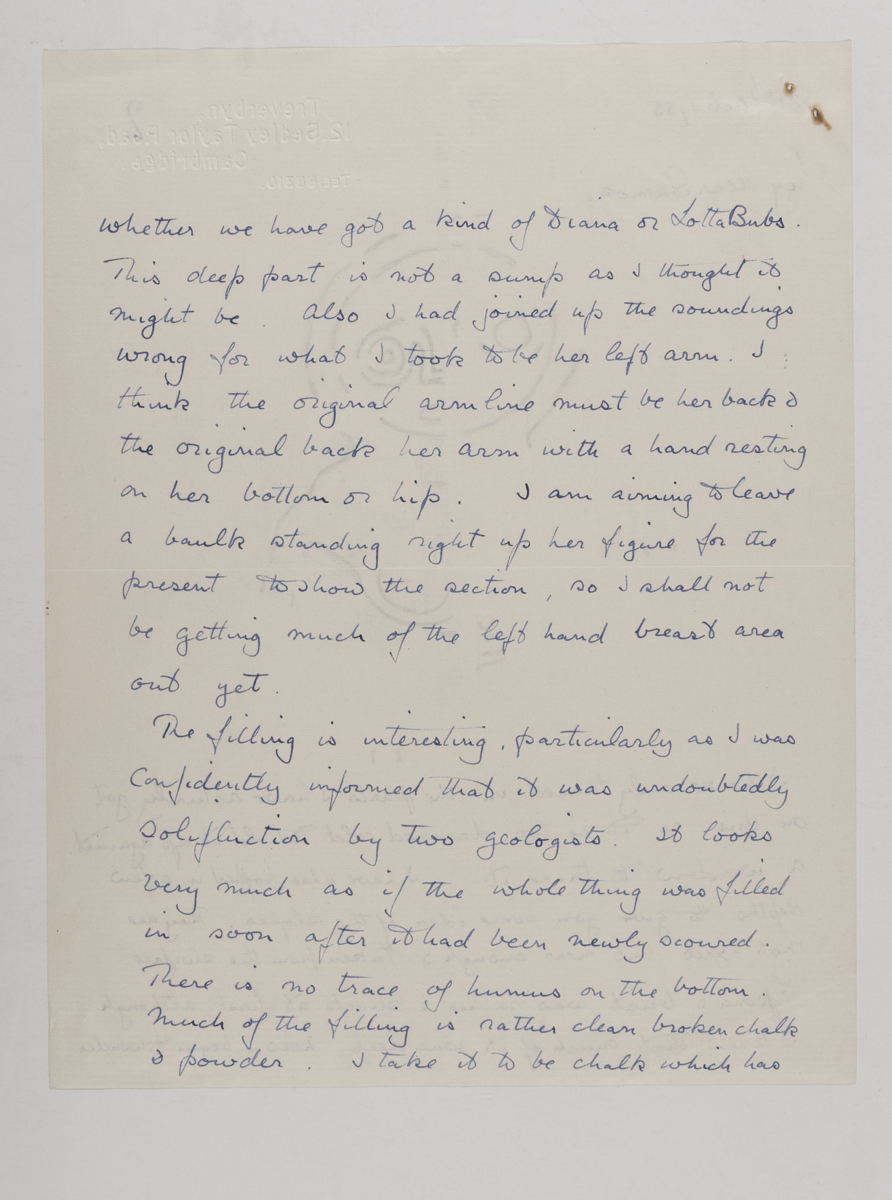 whether we have got a kind of Diana or LottaBubs.
This deep part is not a sump as I thought it
might be. Also I had joined up the soundings
wrong for what I took to be her left arm. I
think the original arm line must be her back &
the original back her arm with a hand resting
on her bottom or hip. I am aiming to leave
a baulk standing right up her figure for the
present to show the section, so I shall not
be getting much of the left hand breast area
out yet.
The filling is interesting, particularly as I was
Confidently informed that it was undoubtedly
Solifluction by two geologists. It looks
very much as if the whole thing was filled
in soon after it had been newly scoured.
There is no trace of humus on the bottom.
Much of the filling is rather clean broken chalk
& powder. I take it to be chalk which has
Treverbyn,
12, Sedley Taylor Road,
Cambridge.